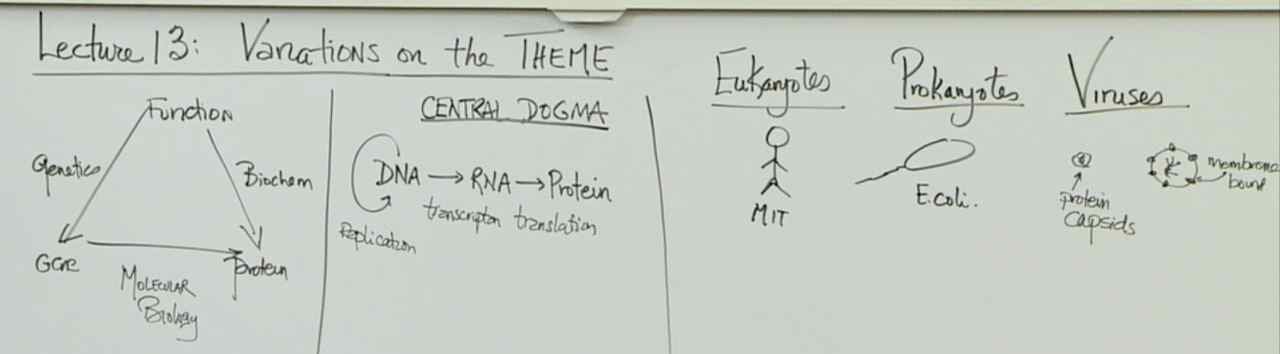 Lecture 13: Variations on the THEME
Function
Genetics
Biochem
Gene
Protein
MOLECULAR
Biology
CENTRAL DOGMA
DNA → RNA → Protein
transcription translation
Replication
Eukaryotes
MIT
Prokaryotes
E.coli.
Viruses
protein
capsids
membrane
bound